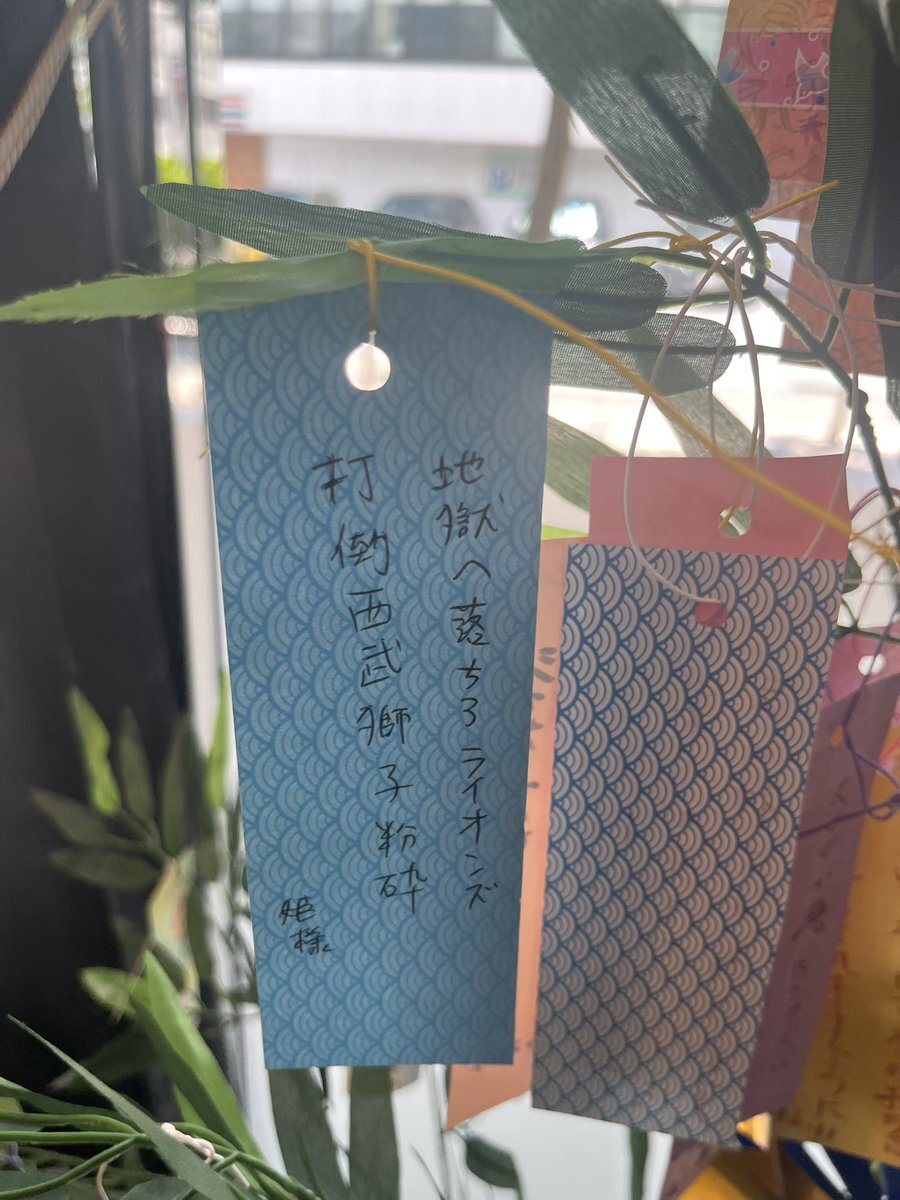 地獄へ落ちろライオンズ
打倒西武獅子粉砕
姫様